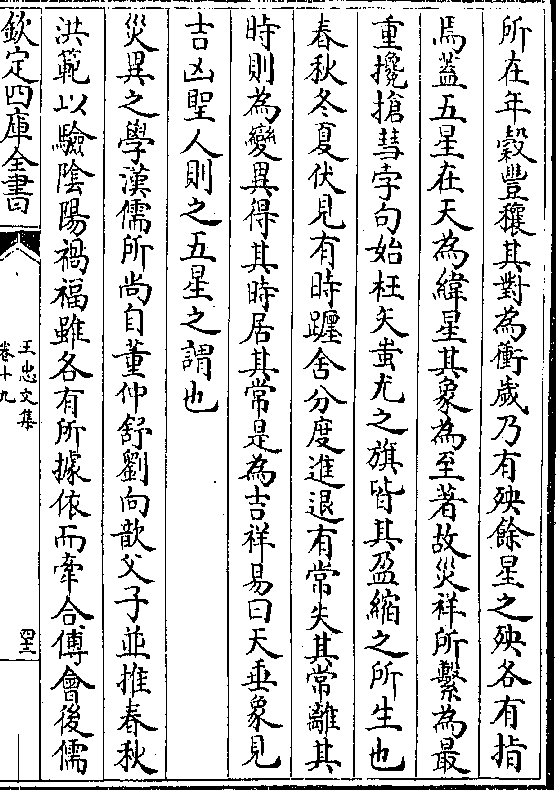 所在年穀豐穰其對為衝歲乃有殃餘星之殃各有指
焉蓋五星在天為緯星其象為至著故災祥所繫為最
重攙搶彗孛句始枉矢蚩尤之旗皆其盈縮之所生也
春秋冬夏伏見有時躔舍分度進退有常失其常離其
時則為變異得其時居其常是為吉祥易曰天垂象見
吉凶聖人則之五星之謂也
災異之學漢儒所尚自董仲舒劉向歆父子並推春秋
洪範以驗陰陽禍福雖各有所據依而牽合傅會後儒
欽定四庫全書
王忠文集
卷十九